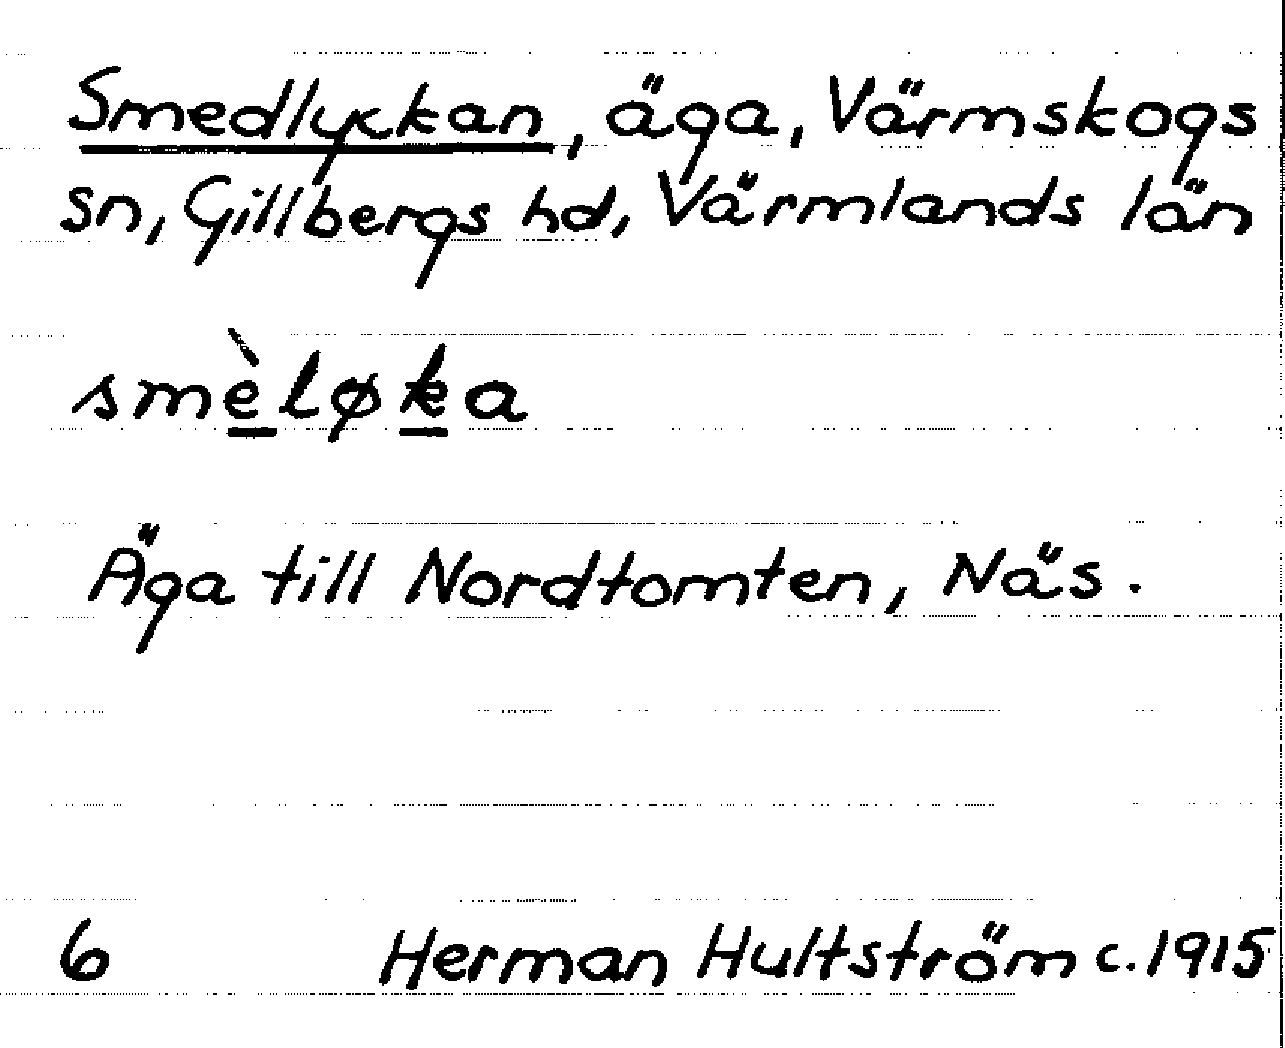 Smedlyckan, äga, Värmskogs
sn, Gillbergs hd, Värmlands län
smèløka
Äga till Nordtomten, Näs.
6 Herman Hultström c. 1915